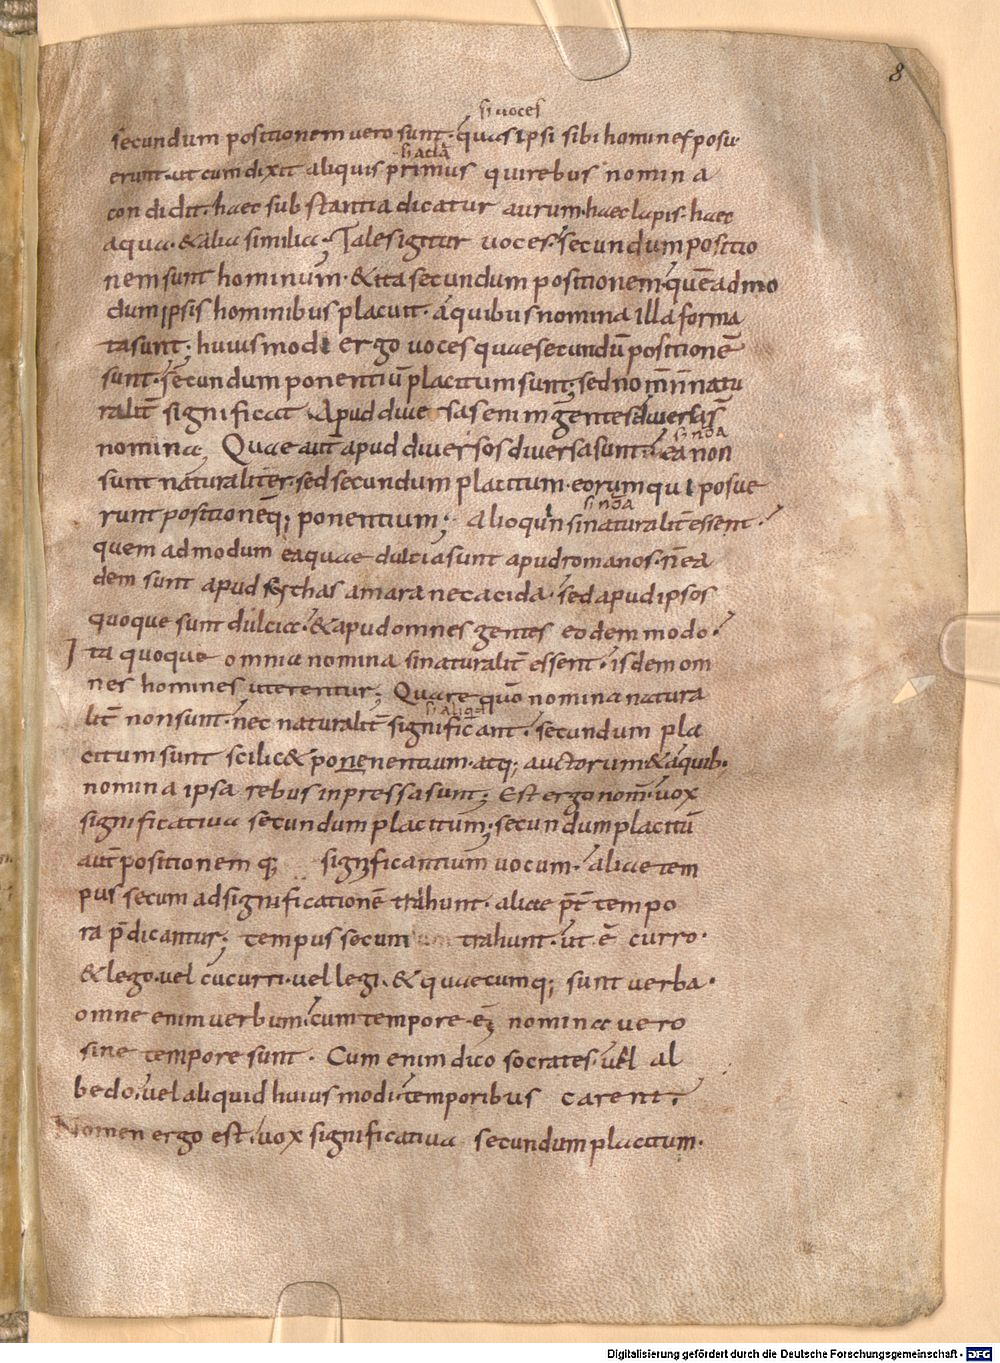 8
si voces
secundum positionem vero sunt · quas ipsi sibi homines posu·
si adā
erunt · ut cum dixit aliquis primus qui rebus nomina
condidit · haec substantia dicatur aurum · haec lapis · haec
aqua · & alia similia ; Tales igitur voces · secundum positio
nem sunt hominum · & ita secundum positionem · quēadmo
dum ipsis hominibus placuit · a quibus nomina illa forma
ta sunt ; huiusmodi ergo voces quae secundū positionē
sunt · secundum ponentiū placitum sunt ; sed nom̄ īn natu
ralit̄ significat · Apud diversas enim gentes diversa s̄
si nōa
nomina ; Quae aut̄ apud diversos diversa sunt · ea non
sunt naturaliter · sed secundum placitum · eorum qui posue
si nōa
runt positionēq; ponentium ; Alioquin si naturalit̄ essent ·
quem admodum ea quae dulcia sunt apud romanos · n̄ ea
dem sunt apud scythas amara nec acida · sed apud ipsos
quoque sunt dulcia · & apud omnes gentes eodem modo ·
Ita quoque omnia nomina si naturalit̄ essent · isdem om
nes homines uterentur ; Quare quō nomina natura
si aliqd
lit̄ non sunt · nec naturalit̄ significant · secundum pla
citum sunt scilic& ponenentium · atq; auctorum & a quib;
nomina ipsa rebus inpressa sunt ; Est ergo nom̄ vox
significativa secundum placitum ; secundum placitū
aut̄ positionem q; significantium vocum · aliae tem
pus secum adsignificationē trahunt · aliae p̄t̄ tempo
ra p̄dicantur ; tempus secum trahunt · ut ē curro ·
& lego · vel cucurri · vel legi · & quaecumq; sunt verba ·
omne enim verbum · cum tempore · ē ; nomina vero
sine tempore sunt · Cum enim dico socrates · vel al
bedo · vel aliquid huiusmodi · temporibus carent ;
Nomen ergo est · vox significativa secundum placitum ·
Digitalisierung gefördert durch die Deutsche Forschungsgemeinschaft - DFG